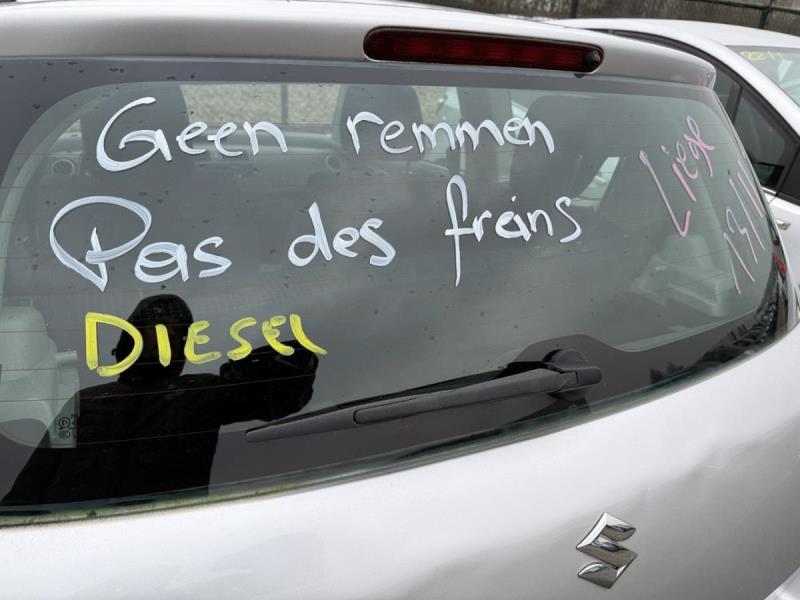 Geen remmen
Pas des freins
DIESEL
Liège
13/11